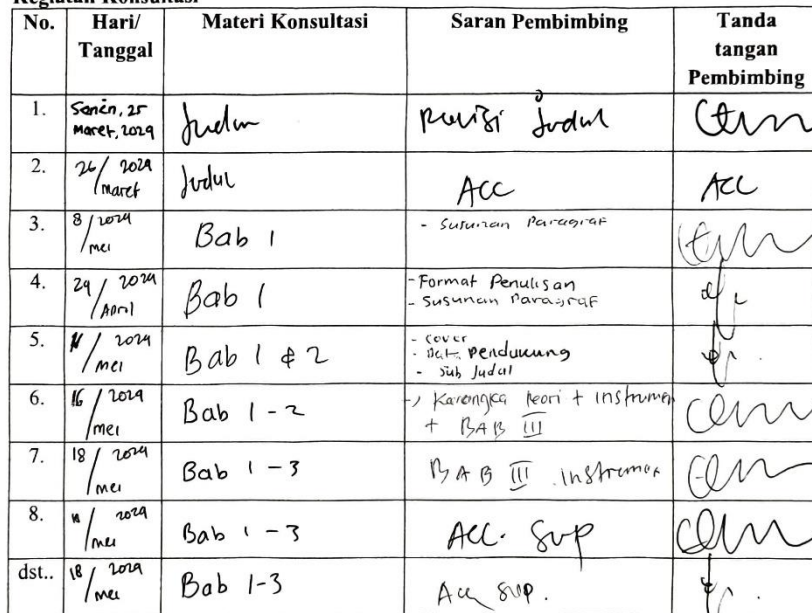 Kegiatan Konsultasi
No. Hari/ Tanggal Materi Konsultasi Saran Pembimbing Tanda tangan Pembimbing
1. Senin, 25 Maret, 2024 Judul Revisi Judul
2. 26/ 2024 Maret Judul ACC ACC
3. 8/ 2024 mei Bab 1 - Susunan Paragraf
4. 24/ 2024 April Bab 1 - Format Penulisan
- Susunan Paragraf
5. / 2024 mei Bab 1 & 2 - cover
- Pendukung
- Sub Judul
6. 16/ 2024 mei Bab 1 - 2 teori + instrumen
+ BAB III
7. 18/ 2024 mei Bab 1 - 3 BAB III instrumen
8. / 2024 mei Bab 1 - 3 ACC. sup
dst.. 18/ 2024 mei Bab 1-3 Acc sup.